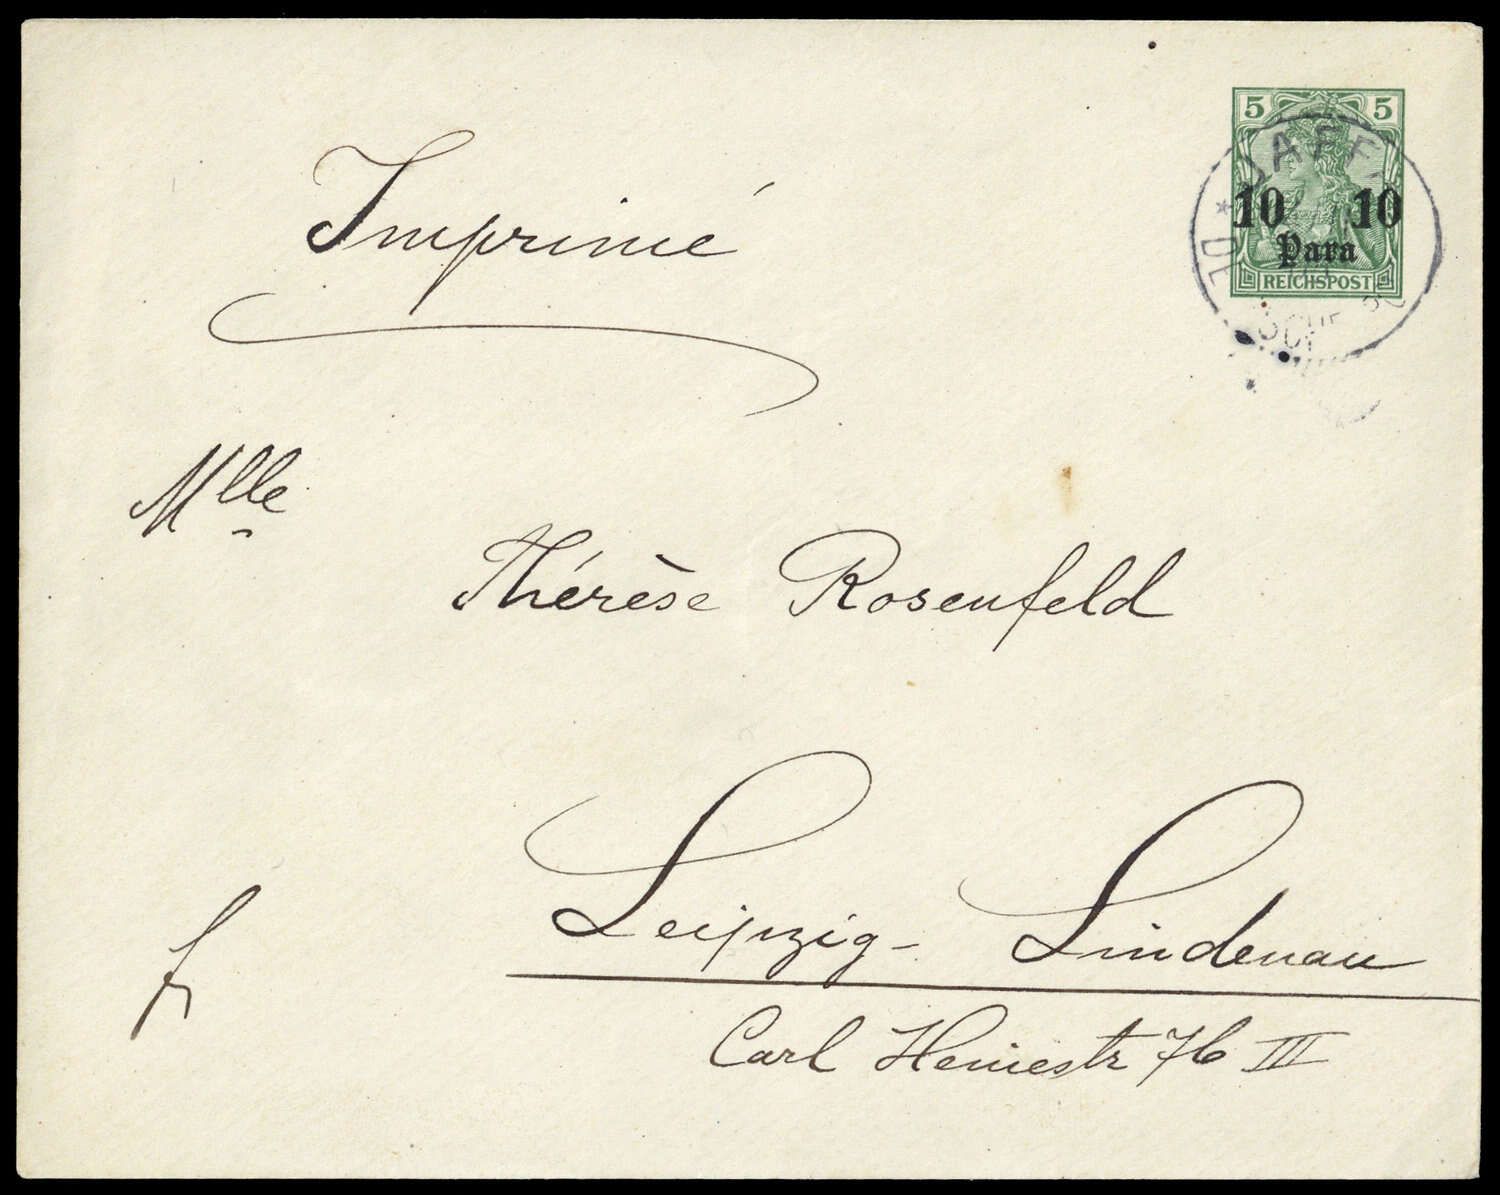 5 5
JAFFA
10 10
Para
REICHSPOST
Imprimé
Mlle
Thérèse Rosenfeld
Leipzig-Lindenau
Carl Heinestr 7b III